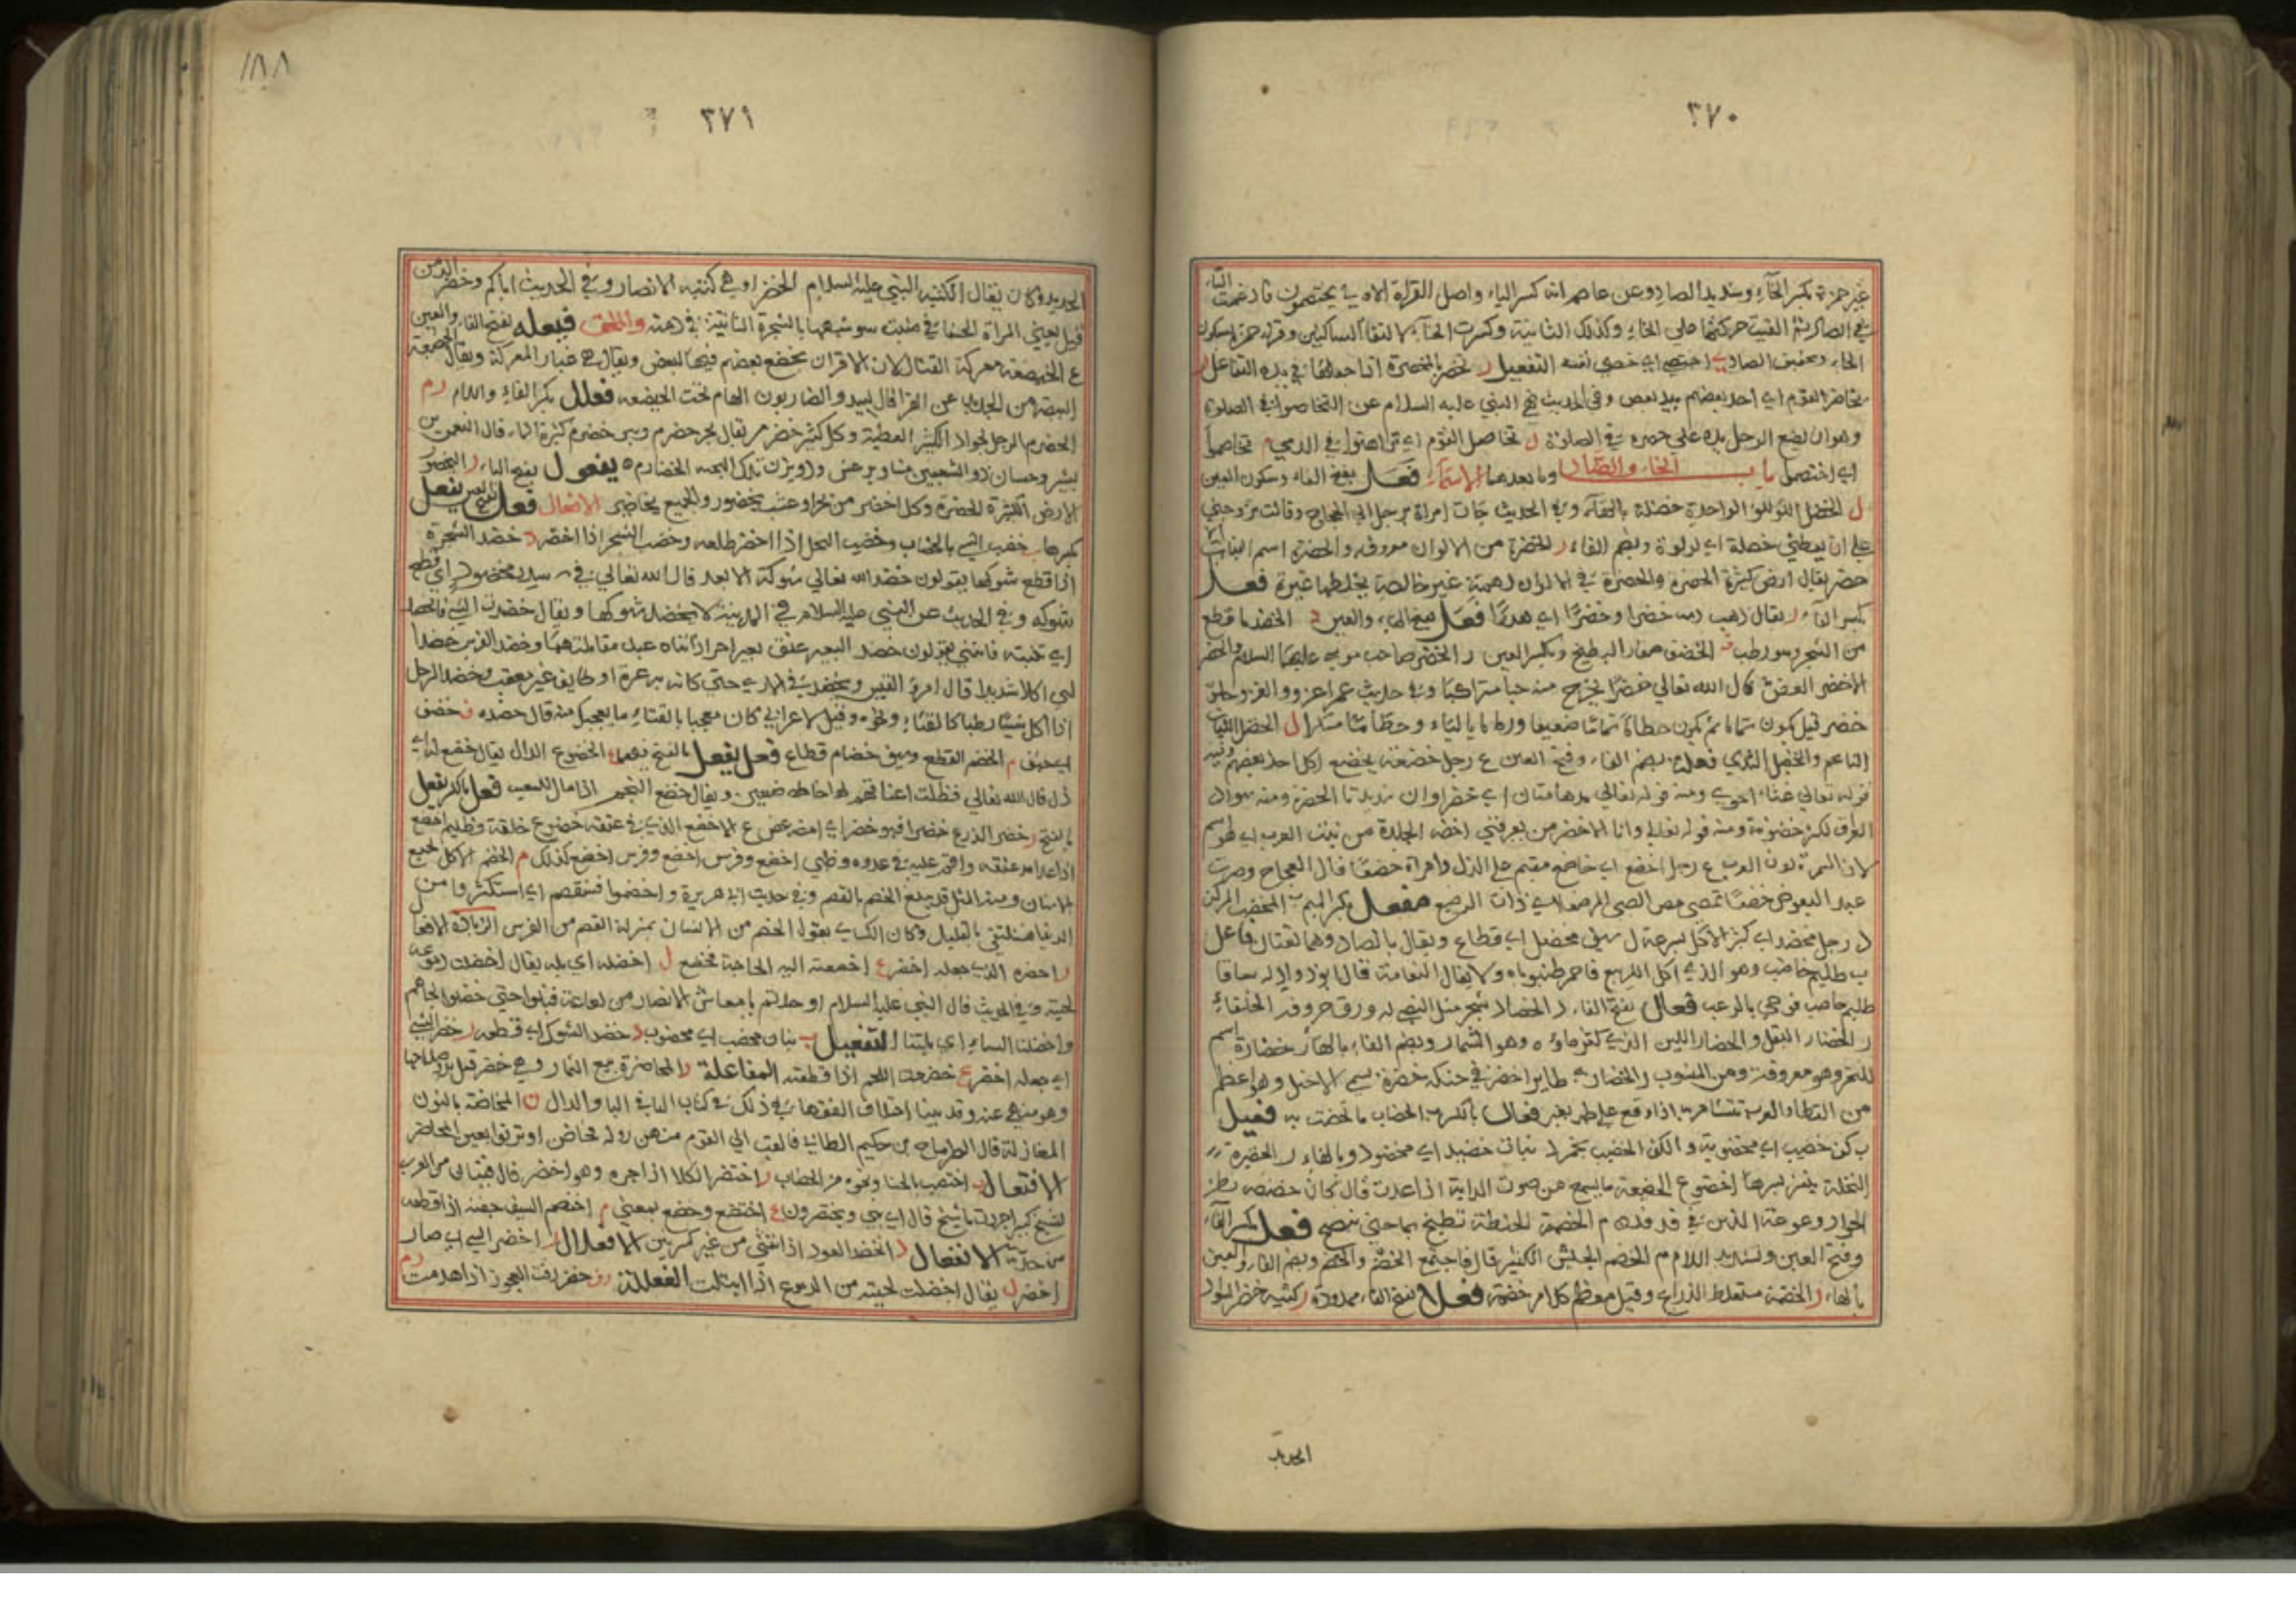 ٣٧٠
غير حمزة بكسر الخاء وتشديد الصاد وعن عاصم انه كسر الياء واصل القراة الاولى يختصمون فادغمت التاء
في الصاد ثم القيت حركتها على الخاء وكذلك الثانية وكسرت الخاء لالتقاء الساكنين وقراة حمزة بسكون
الخاء وتخفيف الصاد اختصى اي خصى نفسه التفعيل ر تخصر بالمخصرة اذا حملها في يده التفاعل ر
تخاصر القوم اي اخذ بعضهم بيد بعض وفي الحديث نهى النبي عليه السلام عن التخاصر في الصلوة
وهو ان يضع الرجل يده على خصره في الصلوة ل تخاصل القوم اي تراهنوا في الرمي م تخاصما
اي اختصما باب الخاء والضاد وما بعدهما الاسماء فعل بفتح الفاء وسكون العين
ل الخضل اللؤلؤ الواحدة خضلة بالهاء وفي الحديث جات امراة برجل الى الحجاج وقالت تزوجني
على ان يعطيني خضلة اي لولوة وبضم الفاء ر الخضرة من الالوان معروفة والخضرة اسم البنات
خضر يقال ارض كثيرة الخضرة والخضرة في الالوان لهمة غير خالصة يخلطها غبرة فعل
بكسر الفاء ر يقال ذهب دمه خضرا وخضرًا اي هدرًا فعل بفتح الفاء والعين د الخضد ما قطع
من الشجر وهو رطب الخضف صغار البطيخ وبكسر العين ر الخضر صاحب موسى عليهما السلام والخضر
الاخضر الغض قال الله تعالى خضرًا نخرج منه حبا متراكبًا وفي حديث عمر اغزوا والغزو حلو
خضر قبل يكون ثمامًا ثم يكون حطامًا ثمامًا ضعيفا ورماما باليًا وحطامًا متكسرا ل الخضل النبات
الناعم والخضل الندي فعلة بضم الفاء وفتح العين ع رجل خضعة يخضع لكل احد
قوله تعالى غثاء احوى ومنه قوله تعالى مدهامتان اي خضراوان شديدتا الخضرة ومنه سواد
العراق لكثرة خضرته ومنه قوله وانا الاخضر من يعرفني اخضر الجلدة من بيت العرب
لان السمرة لون العرب ع رجل اخضع اي خاضع مقيم على الذل وامراة خضعا قال العجاج وصرت
عبدا للبعوض خضعا تمصني مص الصبي المرضعا اي ذات الرضيع مفعل بكسر الميم ب المخضب المركن
د رجل مخضد اي كثير الاكل بسرعة ل سيف مخضل اي قطاع ويقال بالصاد وهما لغتان فاعل
ب ظليم خاضب وهو الذي اكل الربيع فاحمر ظنبوباه ولا يقال للنعامة قال ابو دواد له ساقا
ظليم خاضب فوجئ بالرعب فعال بفتح الفاء د الخضاد شجر مثل النصي له ورق حروفه كحروف الحلفاء
ر الخضار البقل والخضار اللبن الذي كثر ماؤه وهو السمار وبضم الفاء بالهاء ر خضارة اسم
للبحر وهو معروفة ومن المنسوب ر الخضاري طاير اخضر في حنكه خضرة يسمى الاخيل وهو اعظم
من القطا والعرب تتشام به اذا وقع على ظهر بعير فعال بالكسر ب الخضاب ما يختضب به فعيل
ب كف خضيب اي مخضوبة والكف الخضيب نجم د نبات خضيد اي مخضود وبالهاء ر الخضيرة
النخلة ينتثر بسرها اخضر ع الخضيعة ما يسمع من صوت الدابة اذا عدت قال كان خضيعة بطن
الجواد وعوعة الذئب في فدفد م الخضيمة الحنطة تطبخ بماء حتى تنضج فعل بكسر الفاء
وفتح العين وتشديد اللام م الخضم الجيش الكثير قال فاجتمع الخضم والخضم وبضم الفاء والعين
بالهاء ر الخضمة مستغلظ الذراع وقيل معظم كل امر خضمة فعلا بفتح الفاء ممدودة ر كتيبة خضرا لسواد
الحديد
٣٧١
١٨٨
الحديد وكان يقال لكتيبة النبي عليه السلام الخضرا وهي كتيبة الانصار وفي الحديث اياكم وخضرا الدمن
قيل يعني المراة الحسنا في منبت سوء شبهها بالشجرة النابتة في دمنة والملحق فيعله بفتح الفاء والعين
ع الخيضعة معركة القتال لان الاقران يخضع بعضهم فيها لبعض ويقال هي غبار المعركة ويقال الخيضعة
البيضة من الحديد عن الفرا قال لبيد والضاربون الهام تحت الخيضعه فعلل بكسر الفاء واللام رم
الخضرم الرجل الجواد الكثير العطية وكل كثير خضرم يقال بحر خضرم وبير خضرم كثيرة الماء قال النعمن بن
بشير وحسان ذو الشعبين منا ويرعش وذو يزن تلك البحور الخضارم يفعول بفتح الياء ر اليخضور
الارض الكثيرة الخضرة وكل اخضر من شجر او عشب يخضور والجميع يخاضير الافعال فعل بفتح العين يفعل
بكسرها ب خضب الشي بالخضاب وخضب النخل اذا اخضر طلعه وخضب الشجر اذا اخضر د خضد الشجرة
اذا قطع شوكها يقولون خضد الله تعالى شوكة الابعد قال الله تعالى في سدر مخضود اي قطع
شوكه وفي الحديث عن النبي عليه السلام في المدينة لا يخضد شوكها ويقال خضدت الشي فانخضد
اي ثنيته فانثنى يقولون خضد البعير عنق بعير اخر اذا ثناه عند مقاتلتهما وخضد الفرس خضدا
اي اكلا شديدا قال امرؤ القيس ويخضد في الاري حتى كانه به عرة او طايف غير معقب وخضد الرجل
اذا اكل شيئا رطبا كالقثاء ونحوه وقيل لاعرابي كان معجبا بالقثاء ما يعجبك منه قال خضده ف خضف
اي حبق م الخضم القطع وسيف خضام قطاع فعل يفعل بالفتح فيهما ع الخضوع الذل يقال خضع له اي
ذل قال الله تعالى فظلت اعناقهم لها خاضعين ويقال خضع النجم اذا مال للمغيب فعل بالكسر يفعل
بالفتح ر خضر الزرع خضرا فهو خضر اي اخضر غض ع الاخضع الذي في عنقه خضوع خلقة وظليم اخضع
اذا عدا مد عنقه واعتمد عليه في عدوه وظبي اخضع وفرس اخضع كذلك م الخضم الاكل بجميع
الاسنان ومنه المثل قد يبلغ الخضم بالقضم وفي حديث ابي هريرة واخضموا فسنقضم اي استكثروا من
الدنيا فسنكتفي بالقليل وكان الكساي يقول الخضم من الانسان بمنزلة القضم من الفرس الزيادة الافعال
ر اخضره الله جعله اخضر ع اخضعته اليه الحاجة فخضع ل اخضله اي بله يقال اخضلت دموعه
لحيته وفي الحديث قال النبي عليه السلام او جدتم يا معاشر الانصار من لعاعة فبكوا حتى اخضلوا لحاهم
واخضلتنا السماء اي بلتنا التفعيل ب بنان مخضب اي مخضوب د خضد الشوك اي قطعه ر خضر الشي
اي جعله اخضر ع خضعت اللحم اذا قطعته المفاعلة ر المخاضرة بيع الثمار وهي خضر قبل بدو صلاحها
وهو منهي عنه وقد بينا اختلاف الفقها في ذلك في كتاب الباء في باب الباء والدال ن المخاضنة بالنون
المغازلة قال الطرماح بن حكيم الطائي فالقت الي القول منهن زولة تخاضن او ترنو لقول المخاضن
الافتعال ب اختضب بالحنا ونحوه من الخضاب ر اختضر الكلا اذا جزه وهو اخضر قال فتيان من العرب
لشيخ كبير اجززت يا شيخ قال اي بني وتختضرون ع اختضع وخضع بمعنى م اختضم السيف جفنه اذا قطعه
من حدته الانفعال د انخضد العود اذا انثنى من غير كسر بين الافعلال ر اخضر الشي اي صار
اخضر ل يقال اخضلت لحيته من الدموع اذا ابتلت الفعللة رف خضرفت العجوز اذا هرمت